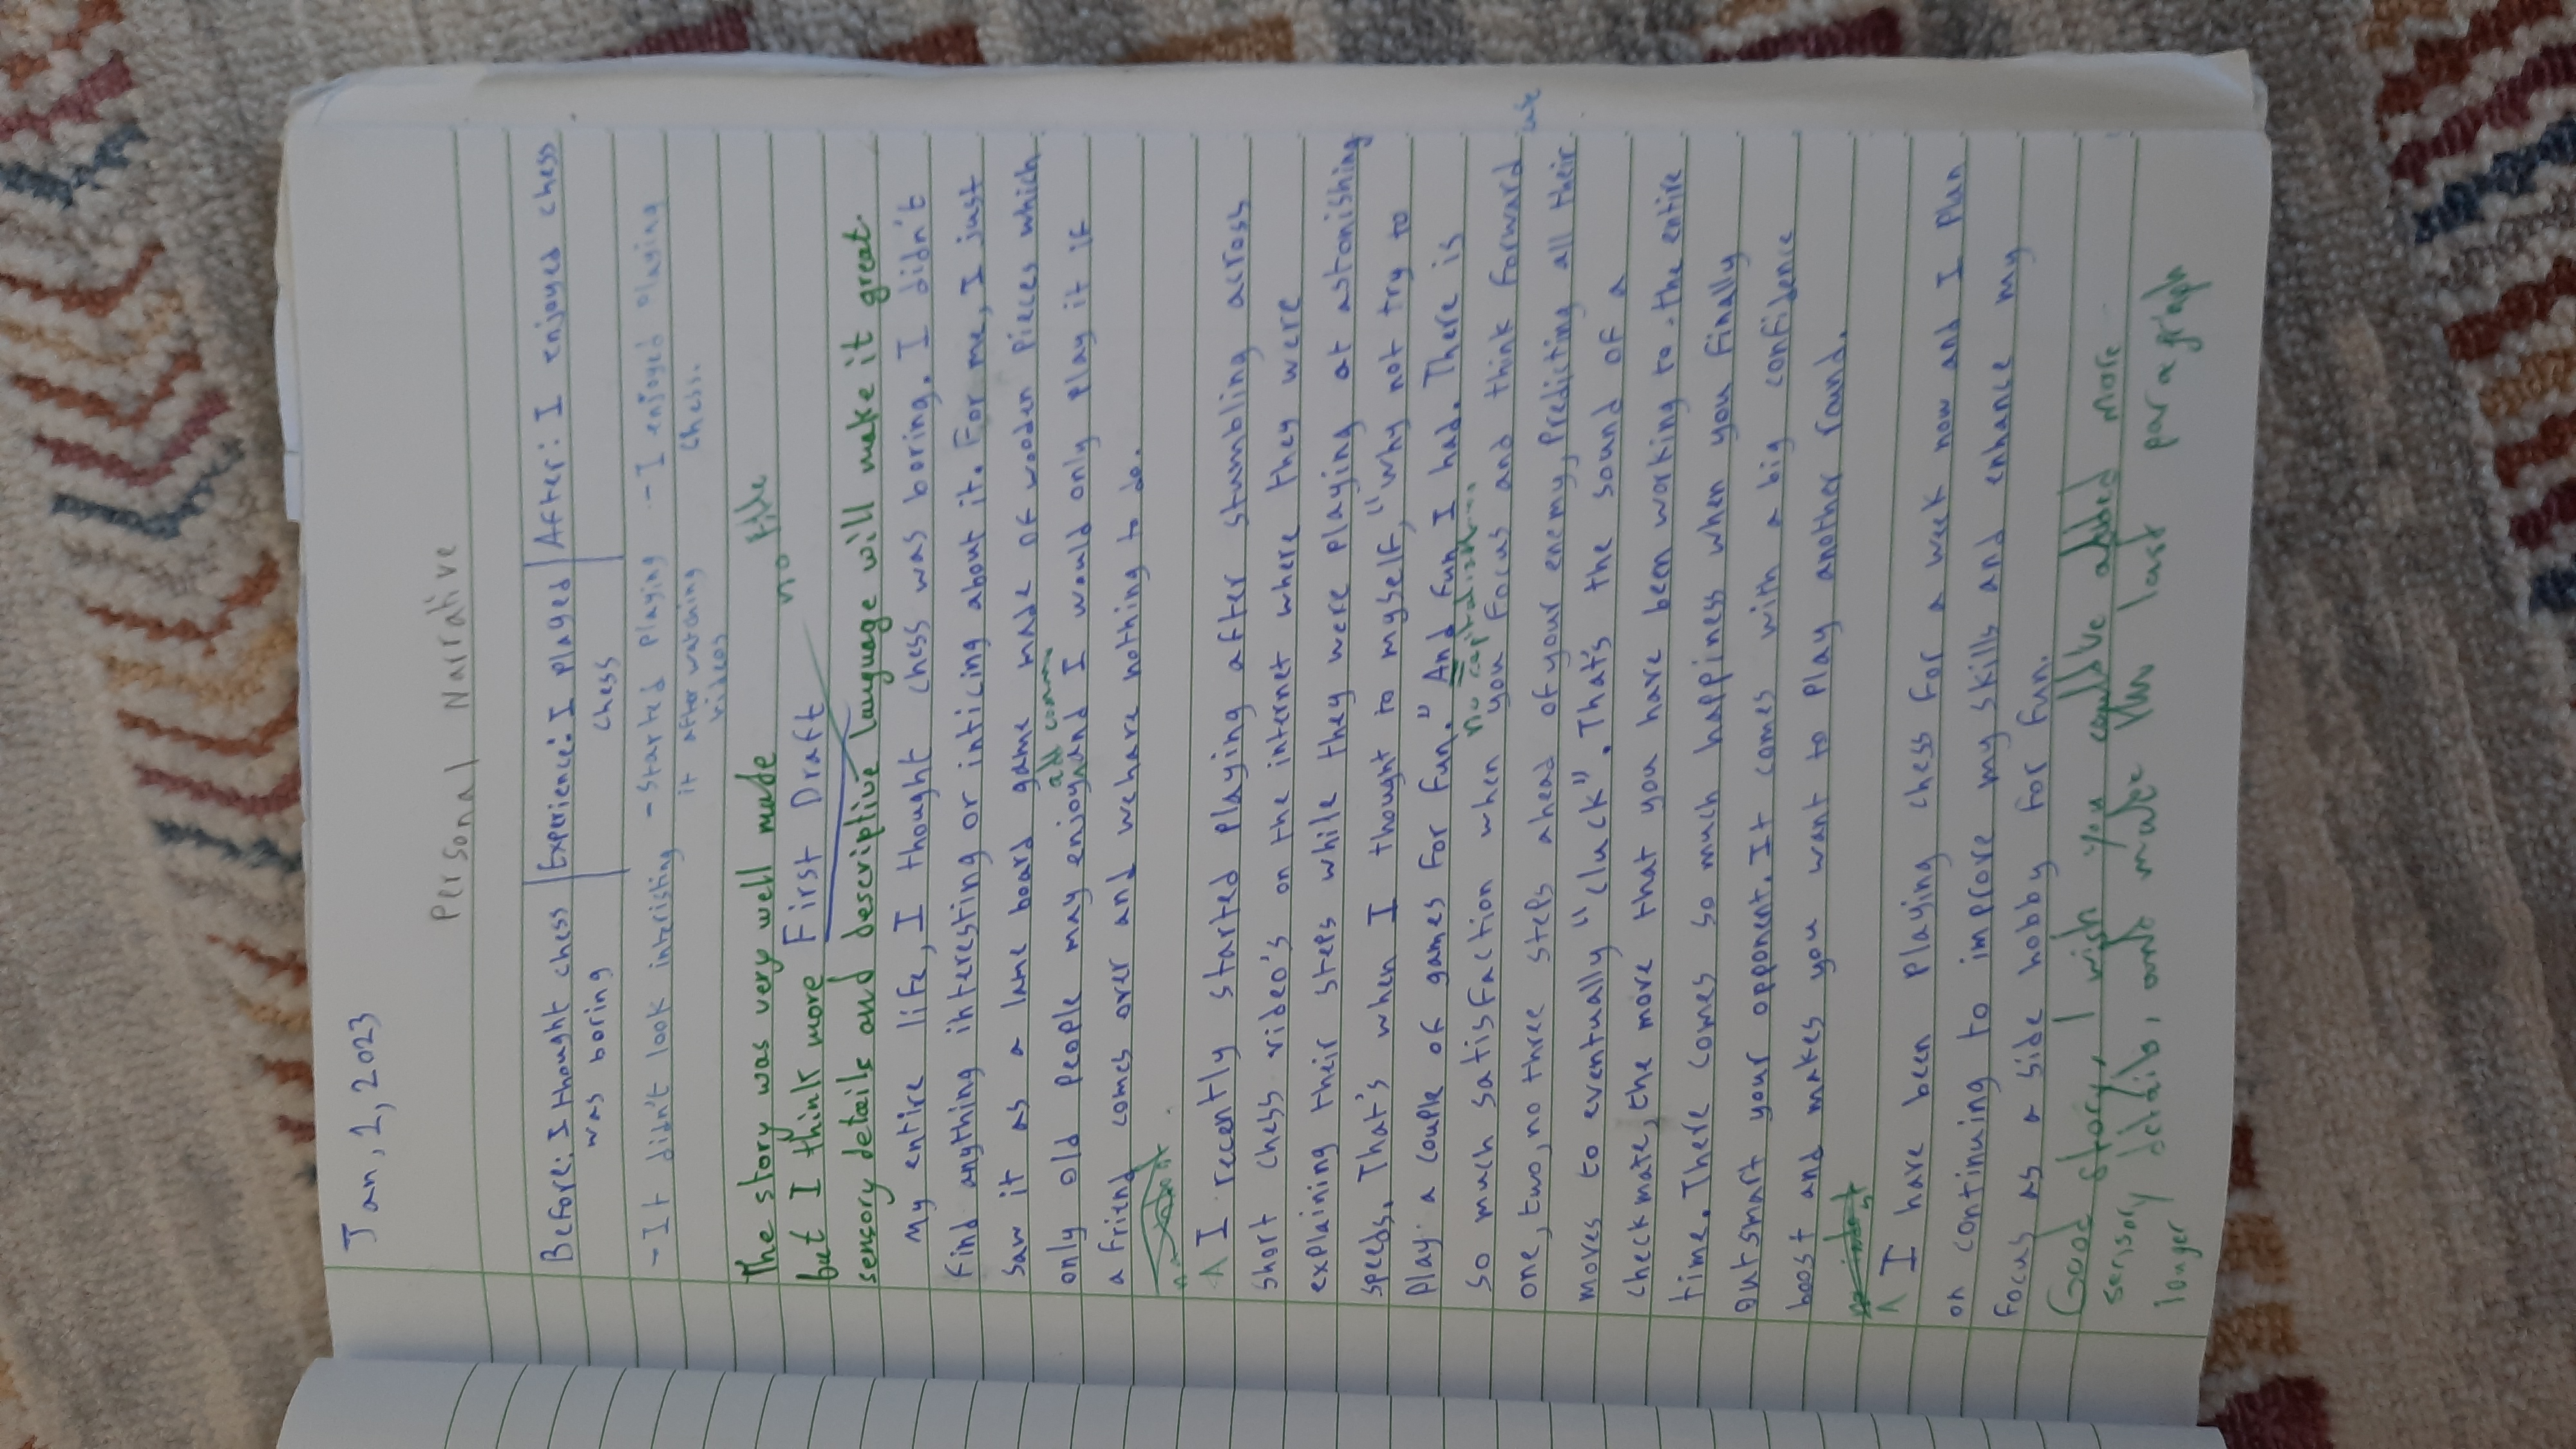 Jan, 1, 2023
Personal Narrative
Before: I thought chess was boring
Experience: I played chess
After: I enjoyed chess
- It didn't look interisting
- Started playing it after watching videos
- I enjoyed playing chess.
The story was very well made
no title
but I think more
First Draft
sensory details and descriptive language will make it great.
My entire life, I thought chess was boring. I didn't
find anything interesting or inticing about it. For me, I just
saw it as a lame board game made of wooden pieces which
add comma
only old people may enjoy and I would only play it if
a friend comes over and we have nothing to do.
I recently started playing after stumbling across
short chess video's on the internet where they were
explaining their steps while they were playing at astonishing
speeds. That's when I thought to myself, "Why not try to
play a couple of games for fun." And fun I had. There is
no capitalization
so much satisfaction when you focus and think forward
one, two, no three steps ahead of your enemy, predicting all their
moves to eventually "cluck". That's the sound of a
checkmate, the more that you have been working to the entire
time. There comes so much happiness when you finally
outsmart your opponent. It comes with a big confidence
boost and makes you want to play another round.
I have been playing chess for a week now and I plan
on continuing to improve my skills and enhance my
focus as a side hobby for fun.
Good story, I wish you could've added more
sensory details, and make the last paragraph
longer